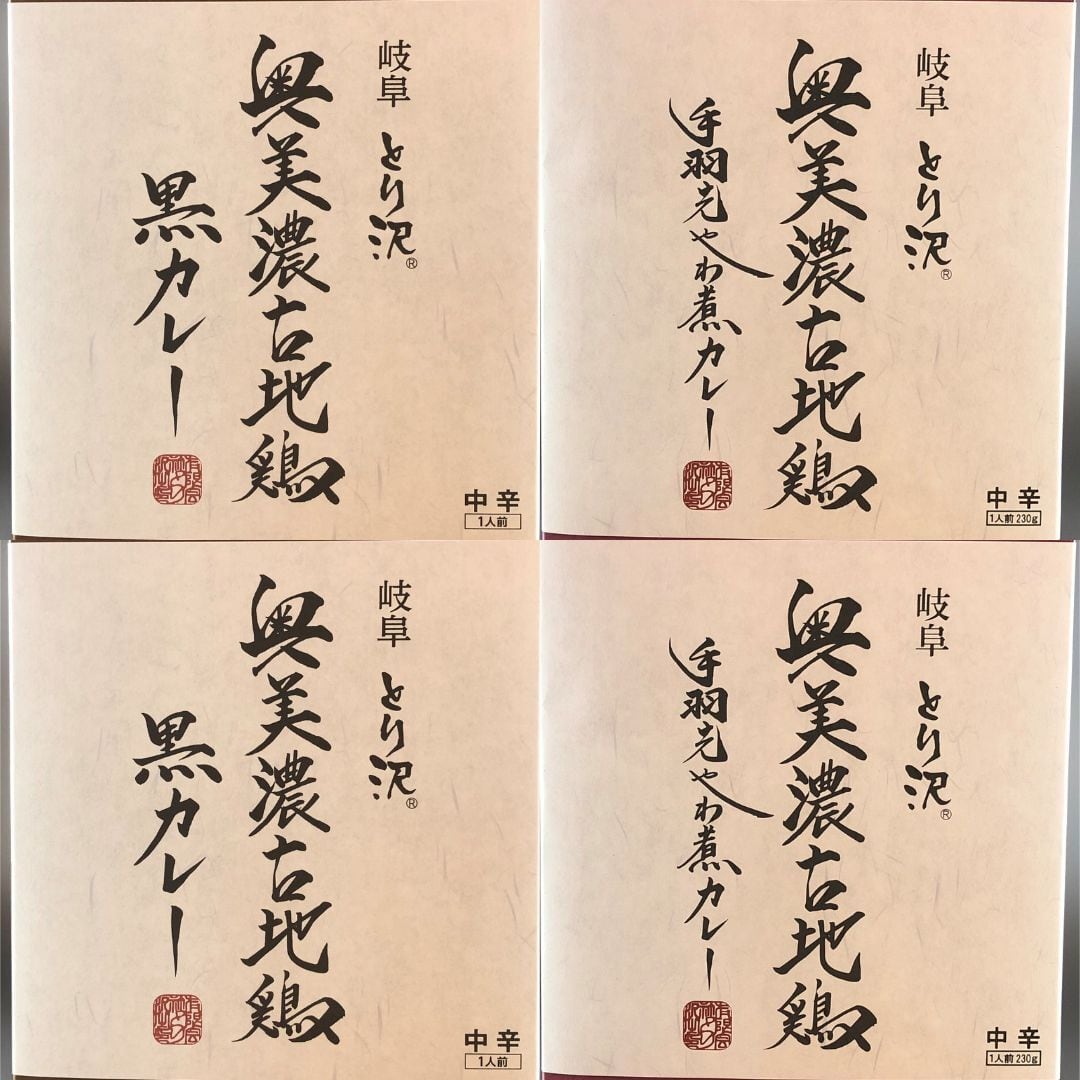 岐阜 とり沢®
奥美濃古地鶏
黒カレー
中辛
1人前
岐阜 とり沢®
奥美濃古地鶏
手羽先やわ煮カレー
中辛
1人前 230g
岐阜 とり沢®
奥美濃古地鶏
黒カレー
中辛
1人前
岐阜 とり沢®
奥美濃古地鶏
手羽先やわ煮カレー
中辛
1人前 230g